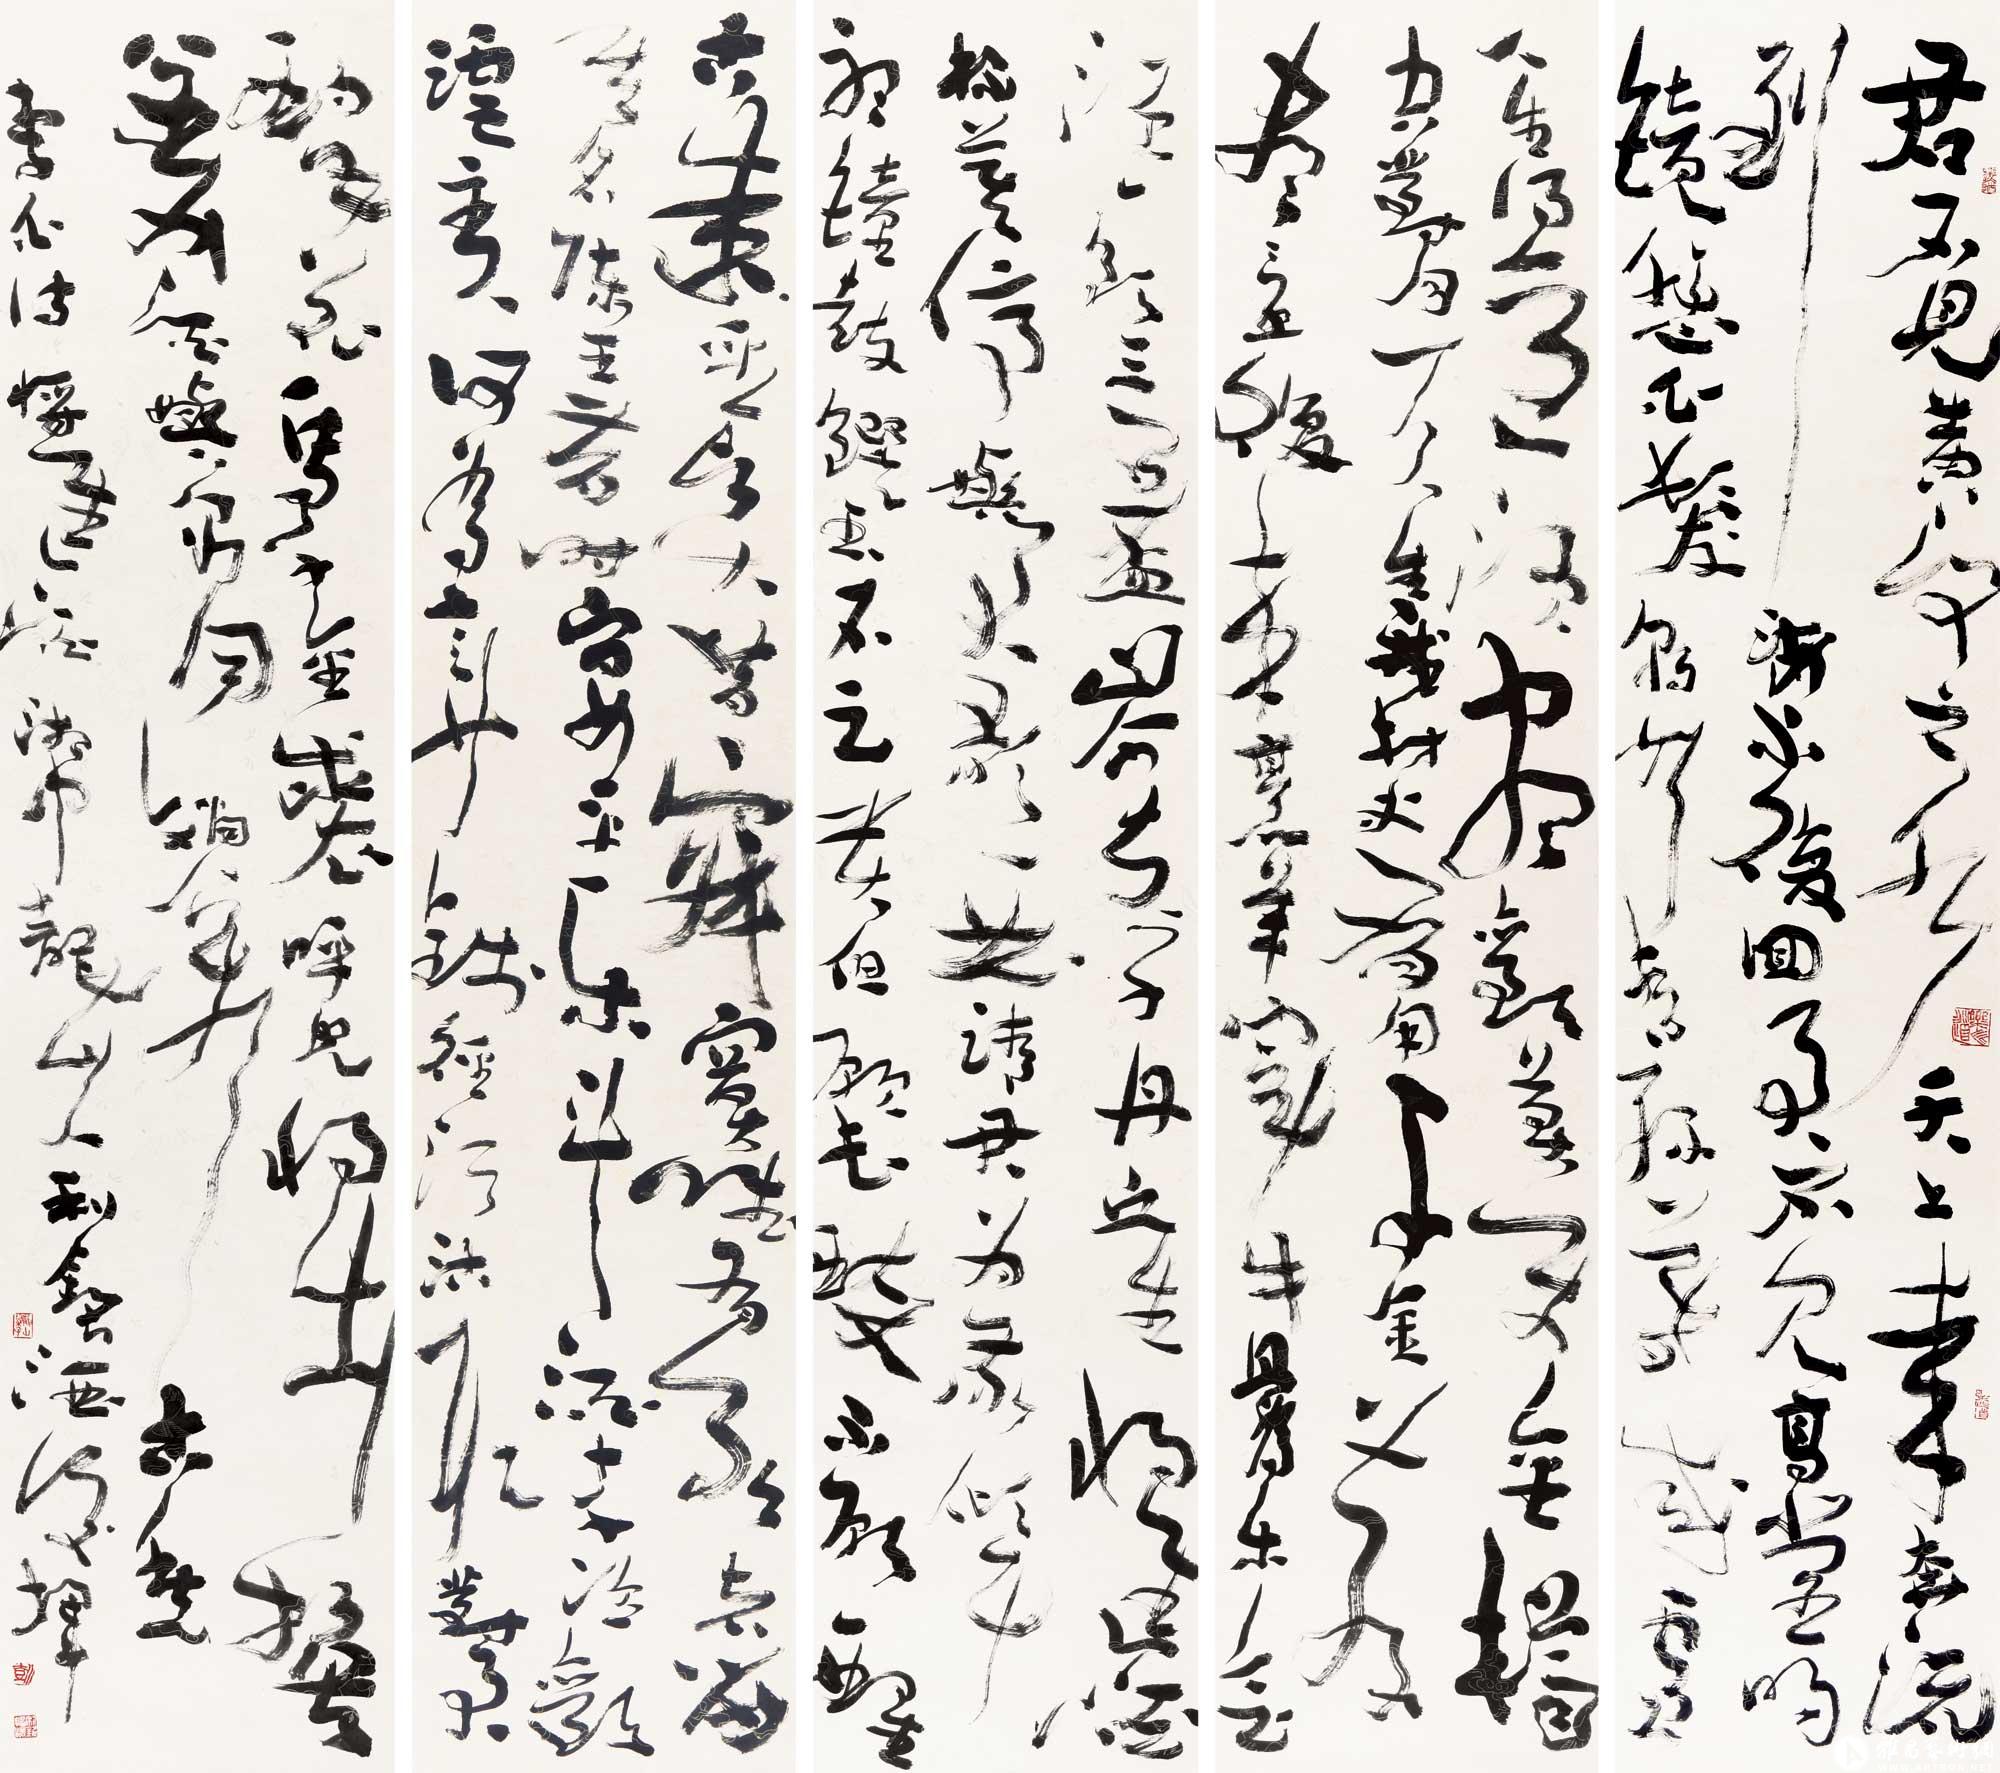 君不見黃河之水天上來奔流
到海不復回君不見高堂明
鏡悲白髮朝如青絲暮成雪
人生得意須盡歡莫使金樽
空對月天生我材必有用千金散
盡還復來烹羊宰牛且為樂會
須一飲三百盃岑夫子丹丘生將進酒
杯莫停與君歌一曲請君為我傾耳
聽鐘鼓饌玉不足貴但願長醉不願醒
古來聖賢皆寂寞惟有飲者留
其名陳王昔時宴平樂斗酒十千恣歡
謔主人何為言少錢徑須沽取對君
酌五花馬千金裘呼兒將出換
美酒與爾同銷萬古愁
李白詩將進酒龍山人利銘酒後揮